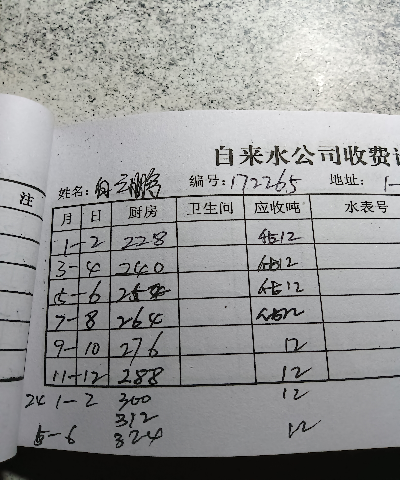 自来水公司收费
注
姓名: 编号:172265 地址: 1-
月 日 厨房 卫生间 应收吨 水表号
1-2 228 估12
3-4 240 估12
5-6 估12
7-8 264 估12
9-10 276 12
11-12 288 12
24 1-2 300 12
312
5-6 324 12